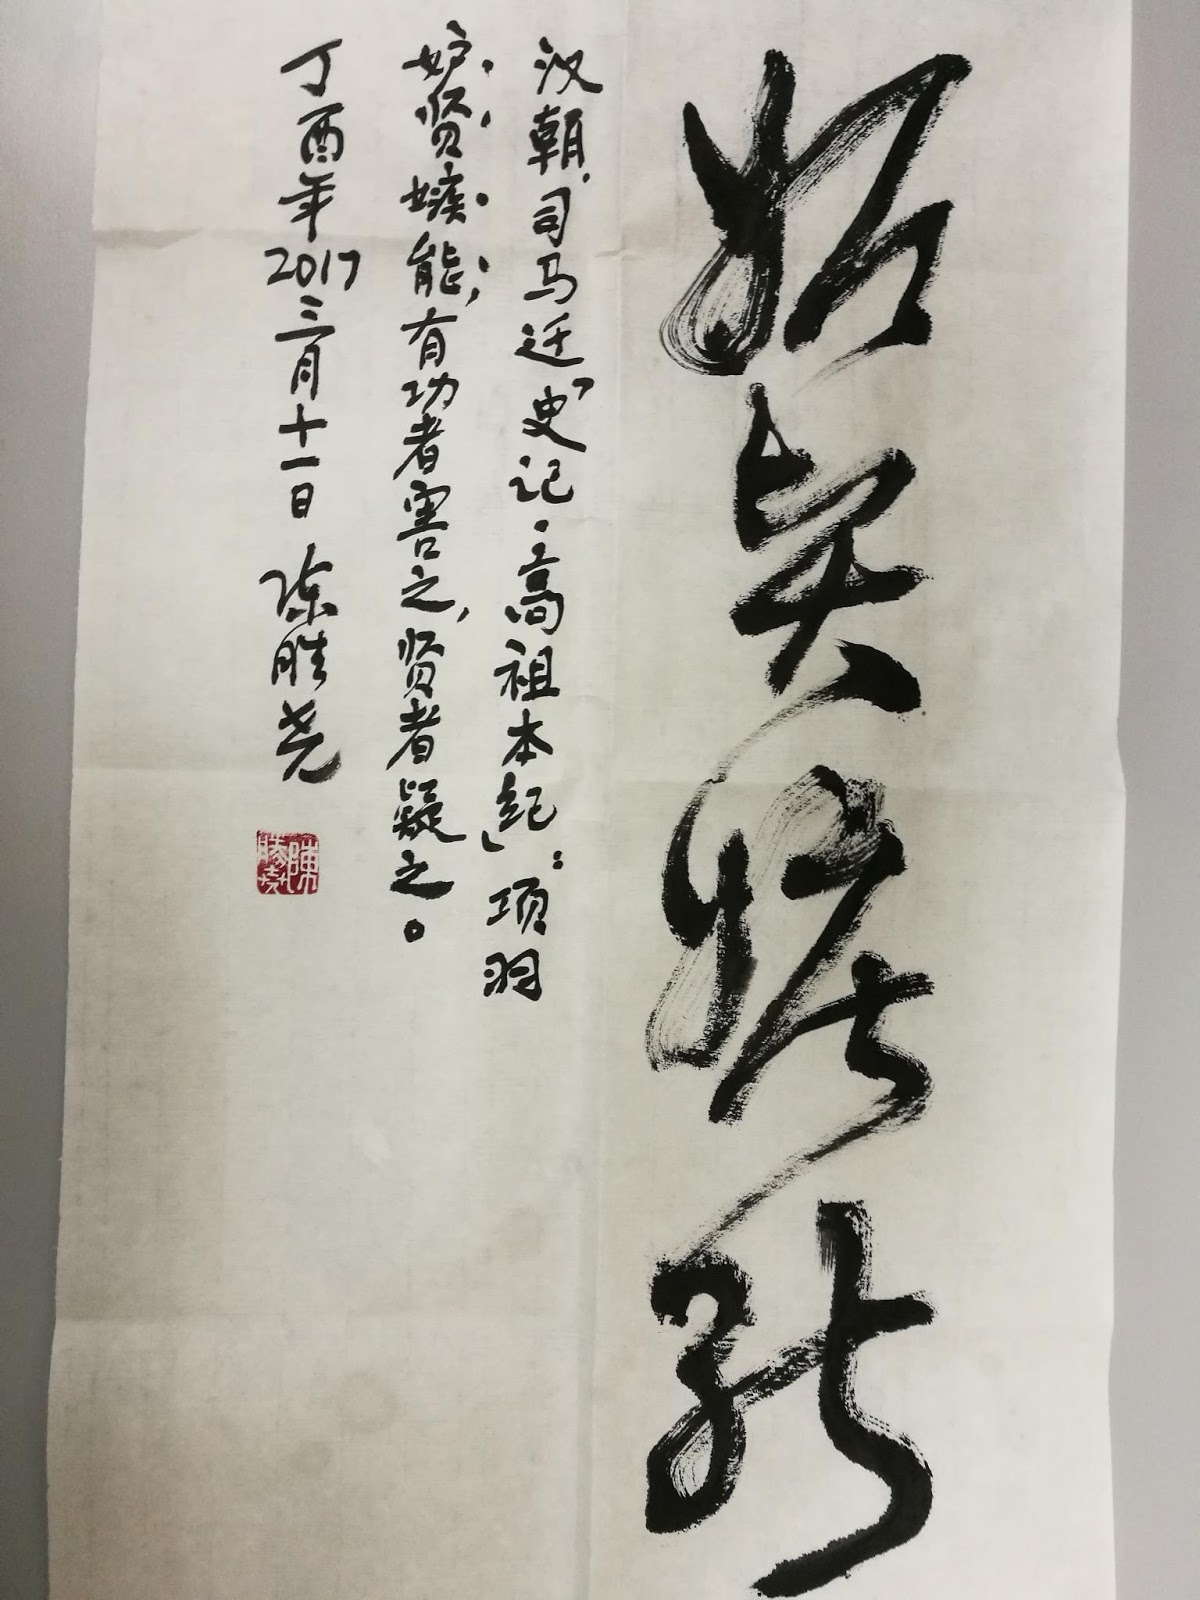 妒贤嫉能
汉朝,司马迁「史记·高祖本纪」:项羽
妒贤嫉能,有功者害之,贤者疑之。
丁酉年2017三月十一日 陈胜尧
陳勝尧